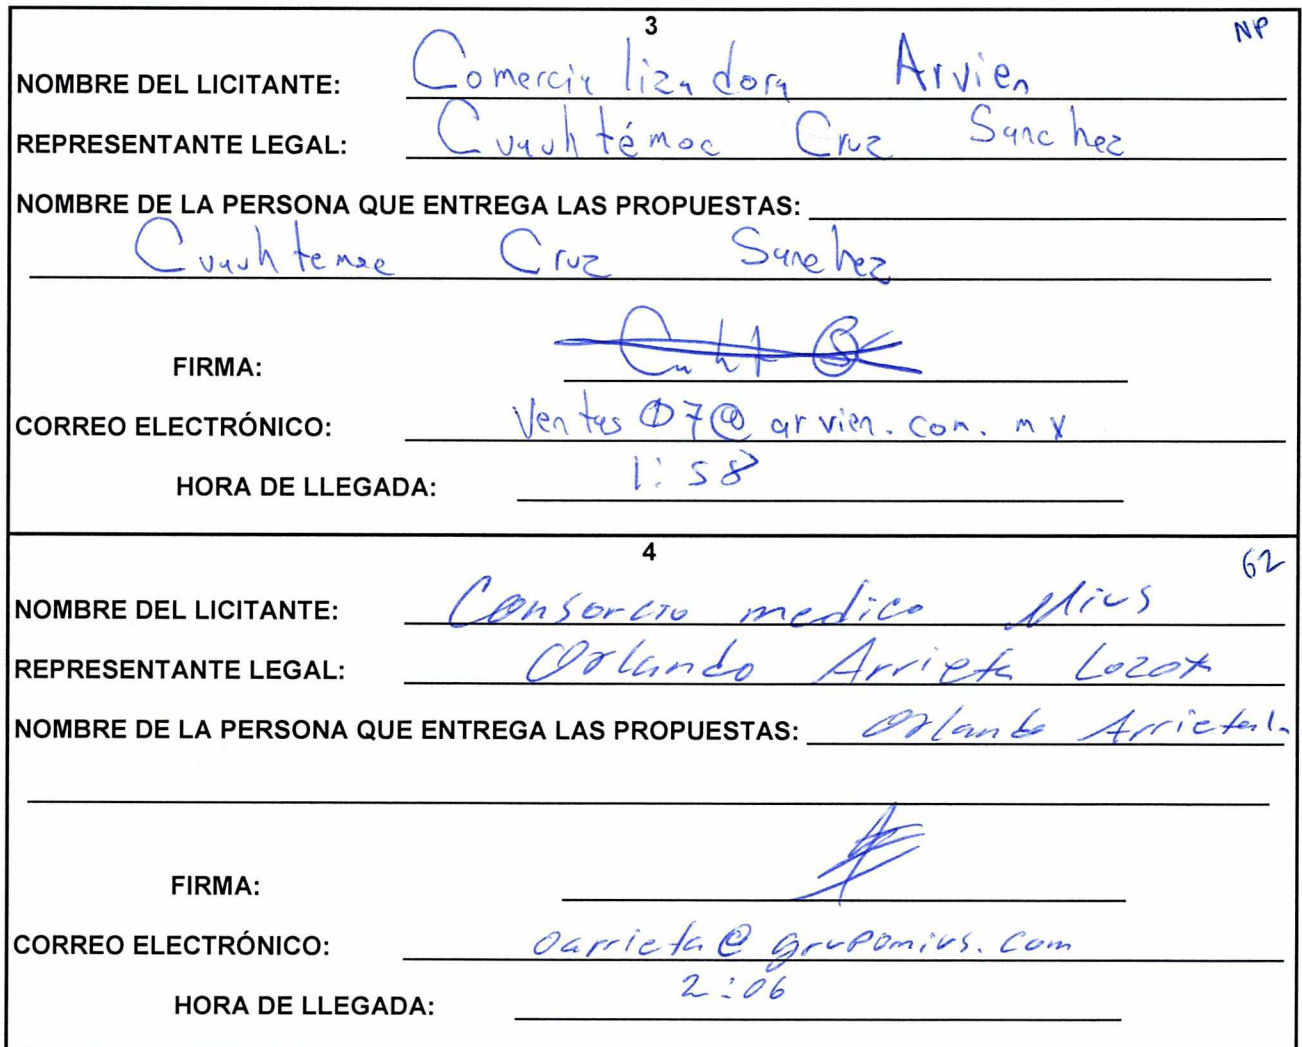 3
NP
NOMBRE DEL LICITANTE: Comercializadora Arvien
REPRESENTANTE LEGAL: Cuauhtémoc Cruz Sanchez
NOMBRE DE LA PERSONA QUE ENTREGA LAS PROPUESTAS:
Cuauhtemoc Cruz Sanchez
FIRMA:
CORREO ELECTRÓNICO: Ventas07@arvien.com.mx
HORA DE LLEGADA: 1:58
4
62
NOMBRE DEL LICITANTE: Consorcio medico Mius
REPRESENTANTE LEGAL: Orlando Arrieta
NOMBRE DE LA PERSONA QUE ENTREGA LAS PROPUESTAS: Orlando
FIRMA:
CORREO ELECTRÓNICO: oarrieta@grupomius.com
HORA DE LLEGADA: 2:06